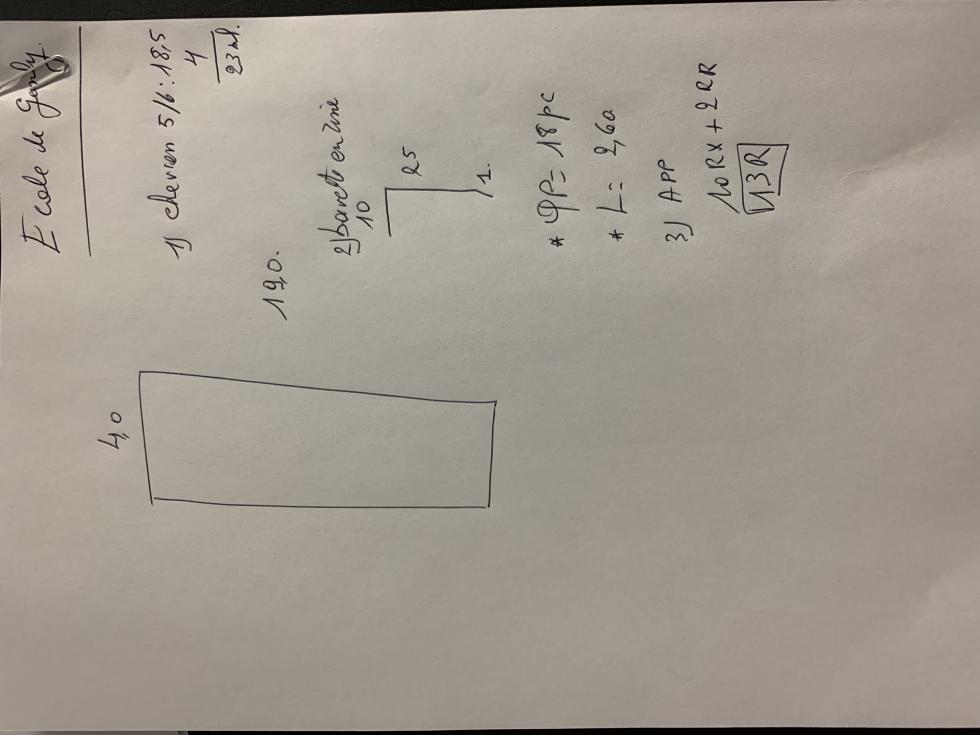 Ecole de
1) chevron 5/6 : 18,5
4
23 ml.
4,0
19,0.
2) bavette en zinc
10
25
1.
* QP = 18 pc
* L = 2,60
3) APP
10 RX + 2 RR
13 R